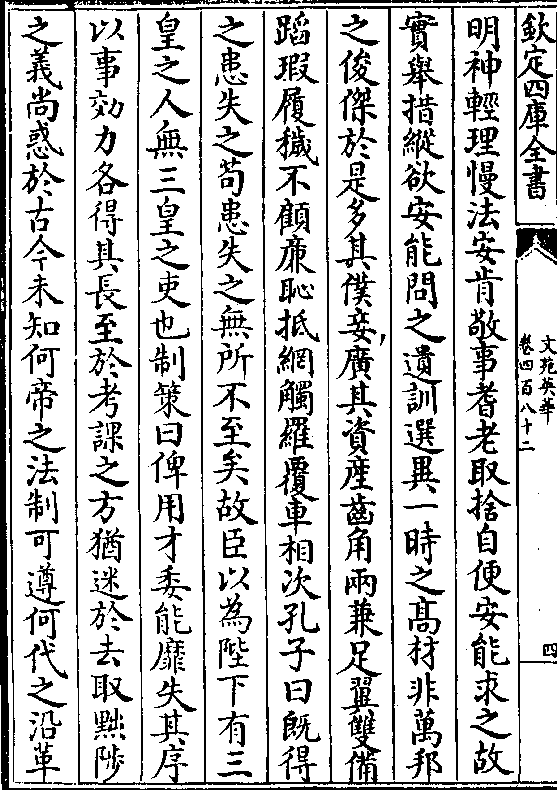 欽定四庫全書
文苑英華
卷四百八十二
四
明神輕理慢法安肯敬事耆老取捨自便安能求之故
實舉措縱欲安能問之遺訓選異一時之髙材非萬邦
之俊傑於是多其僕妾廣其資産齒角兩兼足翼雙備
蹈瑕履穢不顧廉恥抵網觸羅覆車相次孔子曰既得
之患失之苟患失之無所不至矣故臣以為陛下有三
皇之人無三皇之吏也制策曰俾用才委能靡失其序
以事効力各得其長至於考課之方猶迷於去取黜陟
之義尚惑於古今未知何帝之法制可遵何代之沿革